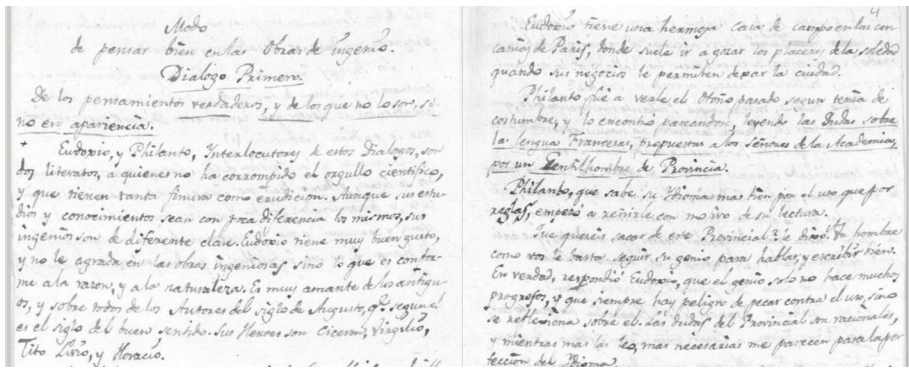 Modo
de pensar bien en las Obras de Ingenio.
Dialogo Primero.
De los pensamientos verdaderos, y de los que no lo son, si-
no en apariencia.
+
Eudoxio, y Philanto, Interlocutores de estos Dialogos, son
dos literatos, a quienes no ha corrompido el orgullo cientifico,
y que tienen tanta finura como erudicion. Aunque sus estu-
dios y conocimientos sean con poca diferencia los mismos, sus
ingenios son de diferente clase. Eudoxio tiene muy buen gusto,
y no le agrada en las obras ingeniosas sino lo que es confor-
me a la razon, y a la naturaleza. Es muy amante de los antigu-
os, y sobre todos de los Autores del siglo de Augusto, q.e segun el
es el siglo del buen sentido. Sus Heroes son Ciceron, Virgilio,
Tito Livio, y Horacio.
4
Eudoxio tiene una hermosa casa de campo en las cer-
canias de Paris, donde suele ir a gozar los placeres de la soledad
quando sus negocios le permiten dejar la ciudad.
Philanto fue a verle el Otoño pasado segun tenia de
costumbre, y lo encontró paseandose, leyendo las Dudas sobre
la lengua Francesa, propuestas a los Señores de la Academia,
por un Gentilhombre de Provincia.
Philanto, que sabe su Idioma mas bien por el uso que por
reglas, empezó a reñirle con motivo de su lectura.
Que quereis sacar de este Provincial? le dixo. Un hombre
como vos le basta seguir su genio para hablar, y escribir bien.
En verdad, respondió Eudoxio, que el genio solo no hace muchos
progresos, y que siempre hay peligro de pecar contra el uso, sino
se reflexiona sobre el. Las dudas del Provincial son racionales,
y mientras mas las leo, mas necesarias me parecen para la per-
feccion del Idioma.